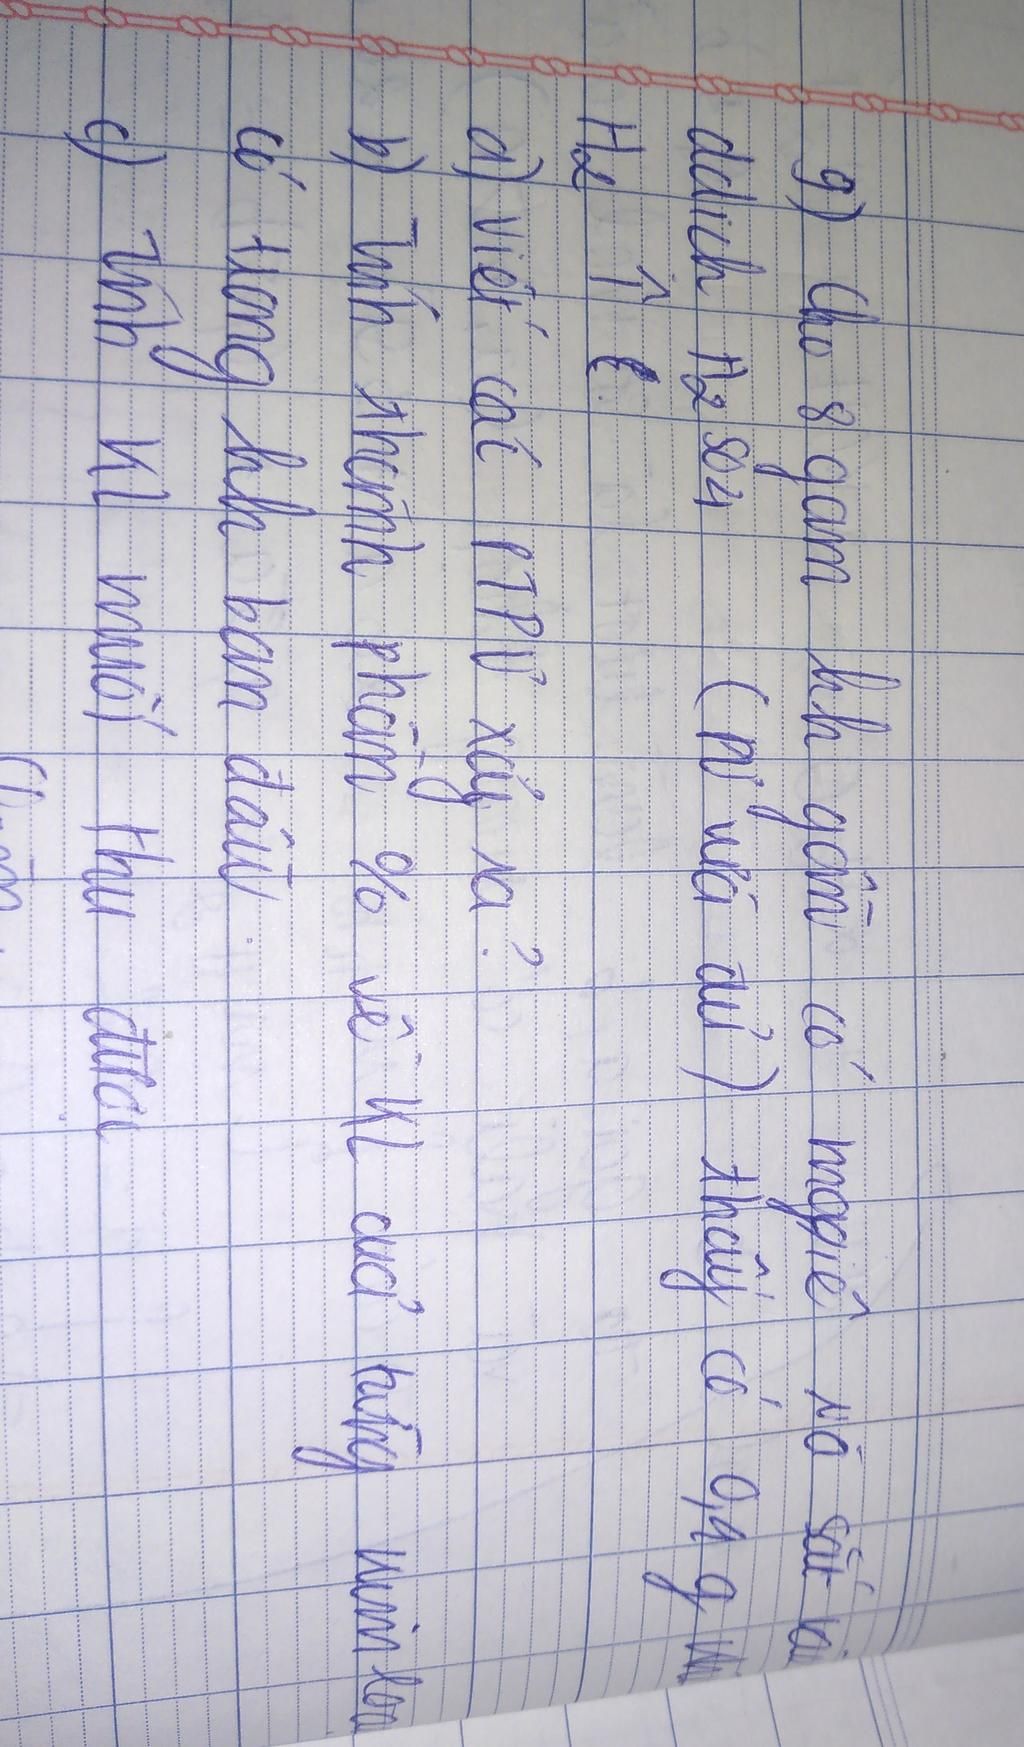 9) Cho 8 gam hh gồm có magiê và sắt
ddich H2SO4 (pứ vừa đủ) thấy có 0,4 g
H2 ↑
a) Viết các PTPỨ xảy ra?
b) Tính thành phần % về KL của từng kim loạ
có trong hh ban đầu
c) Tính KL muối thu được